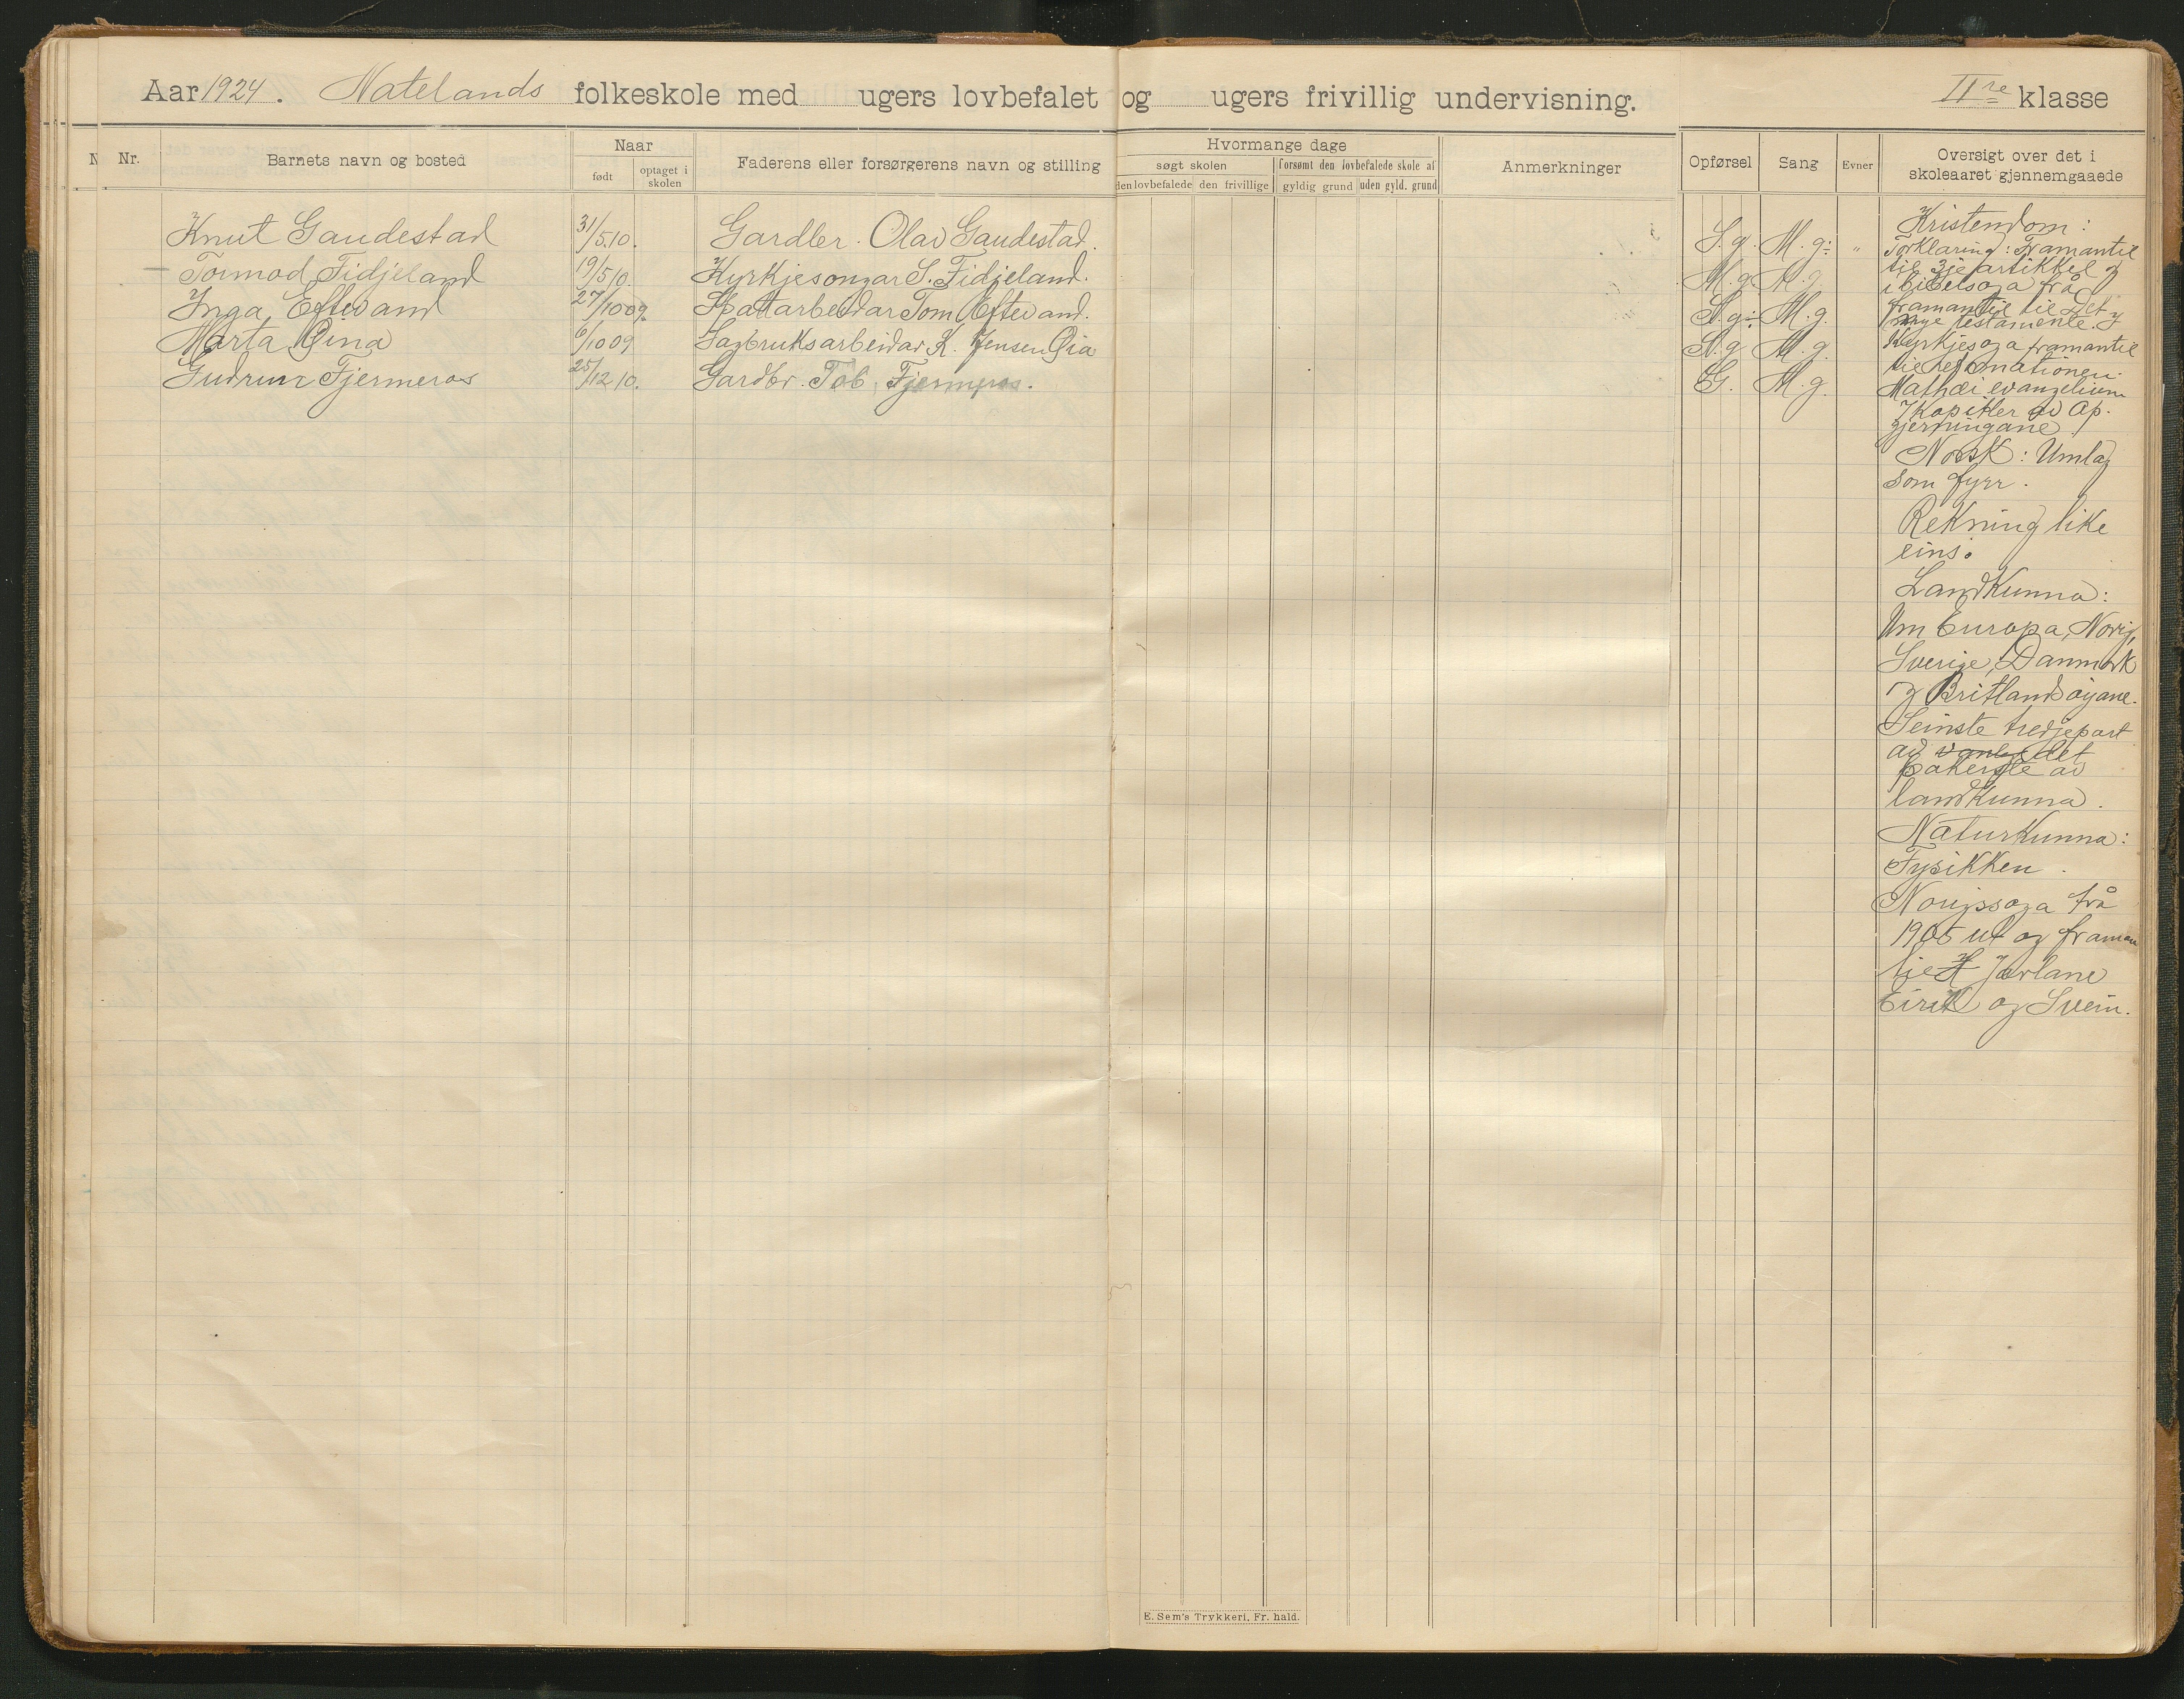 Aar 1924. Natelands folkeskole med ugers lovbefalet og ugers frivillig undervisning. II re klasse
N Nr. Barnets navn og bosted
Naar
født optaget i skolen
Faderens eller forsørgerens navn og stilling
Hvormange dage
søgt skolen forsømt den lovbefalede skole af
den lovbefalede den frivillige gyldig grund uden gyld. grund
Anmerkninger
Opførsel Sang Evner
Oversigt over det i
skoleaaret gjennemgaaede
Knut Gaudestad 31/5.10. Gardbr. Olav Gaudestad. S.g. M.g: "
Tormod Fidjeland 19/5 10. Kyrkjesongar S. Fidjeland. M.g M.g
Inga Eftevand 27/10 09. Tom Eftevand. S.g: M.g.
Marta Øina 6/10 09 Sagbruksarbeidar K. Jensen Øia S.g M.g.
Gudrun Fjermeros 25/12 10. Gardbr. Tob. Fjermeros. G. M.g.
Kristendom:
Forklaring: Framantil
til 3je artikkel og
i bibelsoga frå
framantil til Det
nye testamente. og
Kyrkjesoga framantil
til reformationen.
Mathæi evangelium
7 kapitler av Ap.
gjerningane.
Norsk: Umlag
som fyrr.
Rekning like
eins.
Landkunna:
Um Europa, Norig,
Sverige, Danmark
og Britlandsøyane.
Seinste tredjepart
av det
bakerste av
landkunna.
Naturkunna:
Fysikken.
Norigssoga frå
1905 ut og framan
til Jarlane
Eirik og Svein.
E. Sem's Trykkeri, Fr. hald.